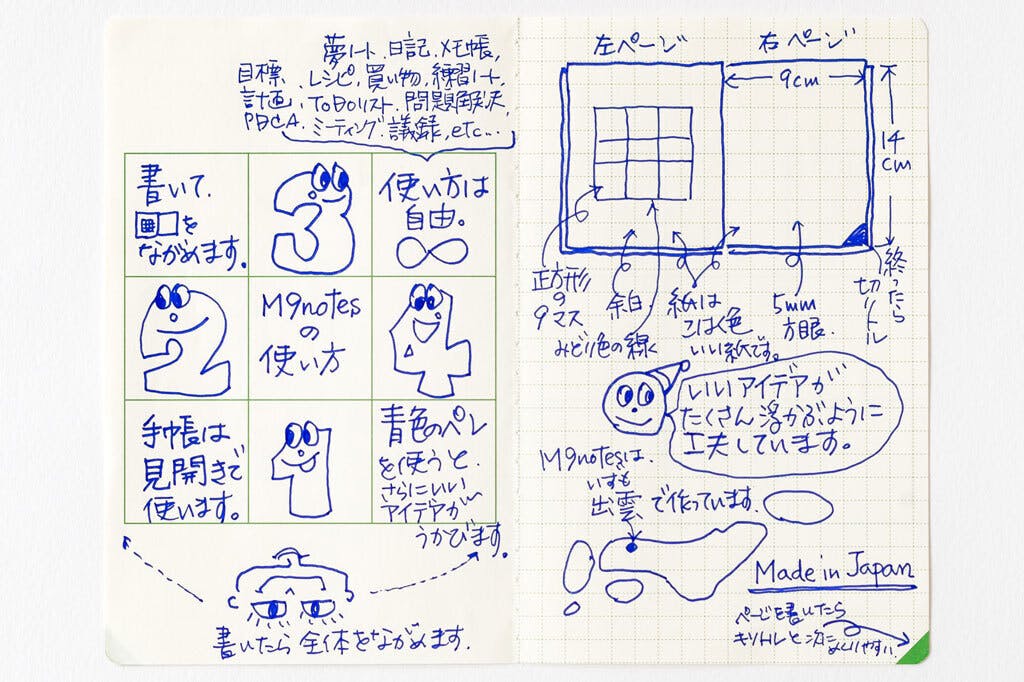 夢ノート、日記、メモ帳、
目標、レシピ、買い物、練習ノート、
計画、ToDoリスト、問題解決、
PDCA、ミーティング、議録、etc...
書いて、
を
ながめます。
3
使い方は
自由。
∞
2
M9notes
の
使い方
4
手帳は
見開きで
使います。
1
青色のペン
を使うと、
さらにいい
アイデアが
うかびます。
書いたら全体をながめます。
左ページ
右ページ
9cm
14
cm
正方形
9マス
余白
みどり色の線
紙は
こはく色
いい紙です。
5mm
方眼。
終ったら
切りトル
いいアイデアが
たくさん浮かぶように
工夫しています。
M9notesは、
いずも
出雲で作っています。
Made in Japan
ページを書いたら
キリトルと次に